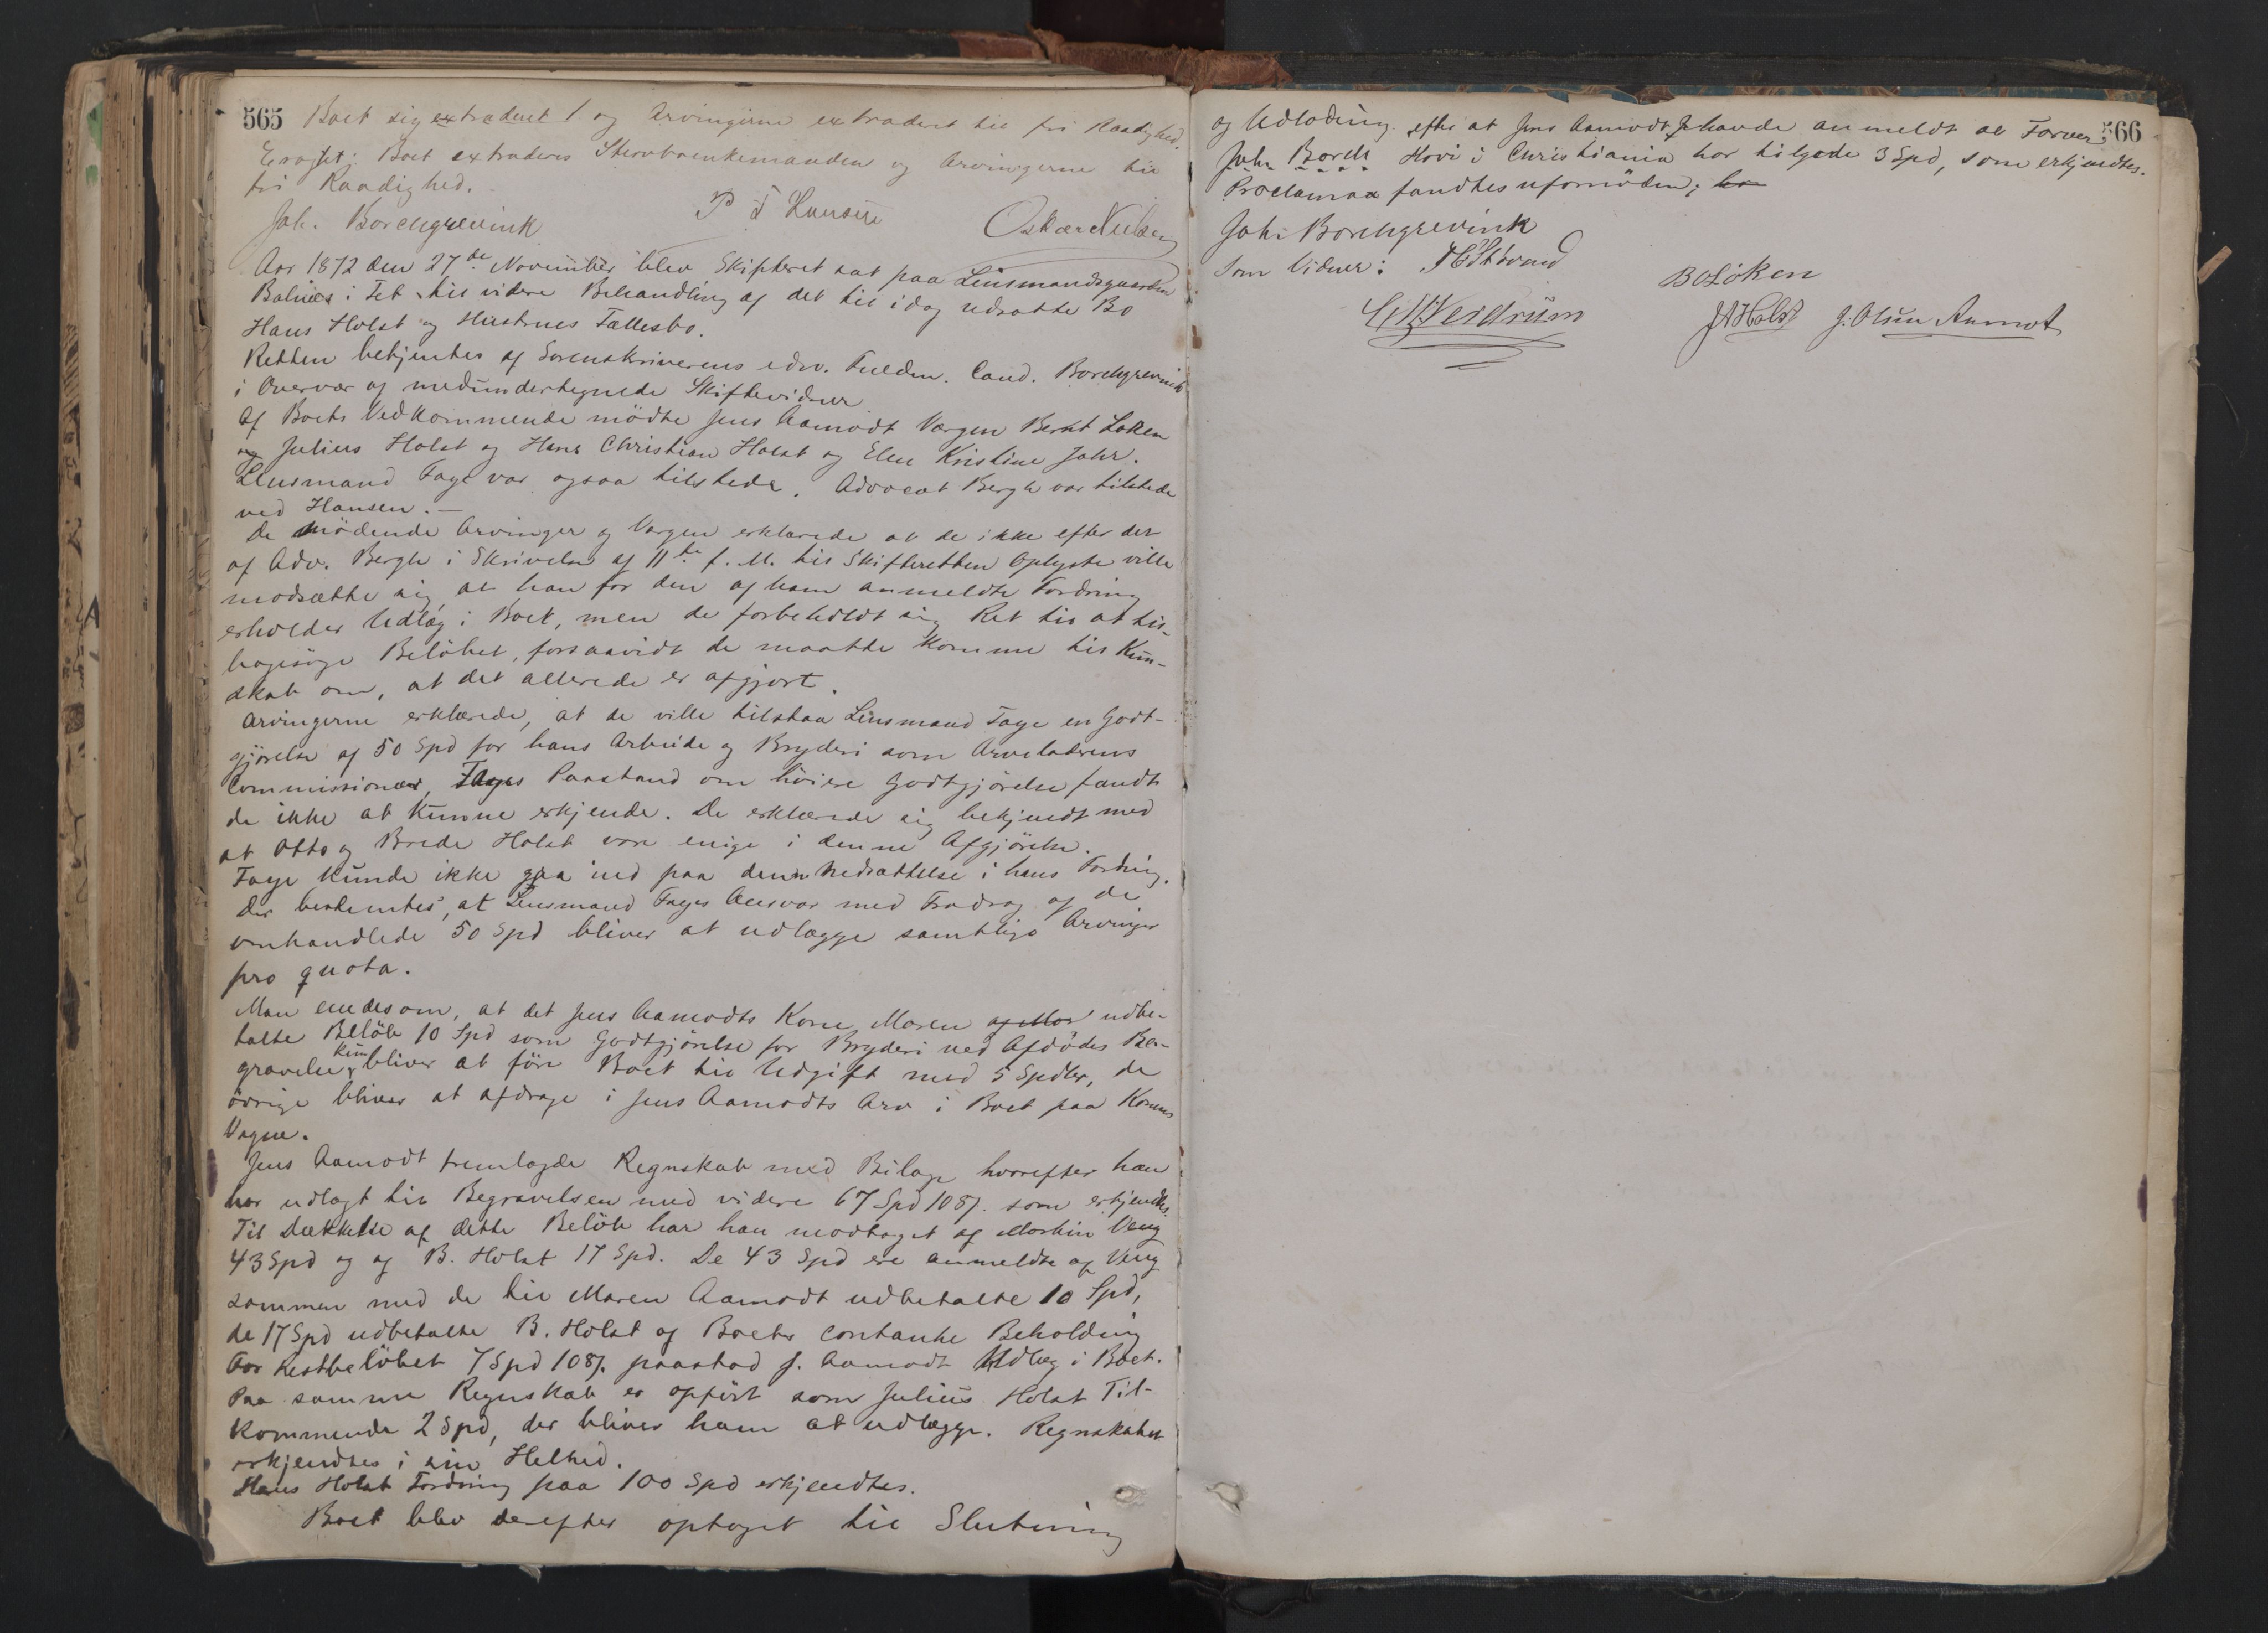 565 Boet sig extraderet / og Arvingerne extraderet til fri Raadighed.
Eragtet: Boet extraderes Sterboenkemanden og Arvingerne til
fri Raadighed.
Joh. Borchgrevink P T Hansen Oskar Nielsen
Aar 1872 den 27de November blev Skifteret sat paa Lensmandsgaarden
Balnes i Fet til videre Behandling af det til idag udsatte Bo
Hans Holst og Hustrues Fællesbo.
Retten betjentes af Sorenskriverens edsv. Fuldm. Cand. Borchgrevink
i Overvær af medundertegnede Skiftevidner
Af Boets Vedkommende mödte Jens Aamodt Vergen Bernt Loken
og Julius Holst og Hans Christian Holst og Elen Kristine Jahr.
Lensmand Faye var ogsaa tilstede. Advocat Bergh var tilstede
ved Hansen. –
De mödende Arvinger og Vergen erklærede at de ikke efter det
af Adv. Bergh i Skrivelse af 11te f. M. til Skifteretten Oplyste ville
modsætte sig, at han for den af ham anmeldte Fordring
erholder Udlæg i Boet, men de forbeholdt sig Ret til at til-
bagesöge Belöbet, forsaavidt de maatte komme til Kun-
skab om, at det allerede er afgjort.
Arvingerne erklærede, at de ville tilstaa Lensmand Faye en Godt-
gjörelse af 50 Spd for hans Arbeide og Bryderi som Arveladerens
Commissionær, Fayes Paastand om höiere Godtgjörelse fandt
de ikke at kunne erkjende. De erklærede sig bekjendt med
at Otto og Brede Holst vare enige i denne Afgjörelse.
Faye kunde ikke gaa ind paa denne Nedsættelse i hans Fordring.
Der bestemtes, at Lensmand Fayes Ansvar med Fradrag af de
omhandlede 50 Spd bliver at udlægge samtlige Arvinger
pro quota.
Man enedes om, at det Jens Aamodts Kone Maren af Mor udbe-
talte Belöb 10 Spd som Godtgjörelse for Bryderi ved Afdödes Be-
gravelse kun bliver at före Boet til Udgift med 5 Spdlr, de
övrige bliver at afdrage i Jens Aamodts Arv i Boet paa Konens
Vegne.
Jens Aamodt fremlagde Regnskab med Bilage hvorefter han
har udlagt til Begravelsen med videre 67 Spd 108 s. som erkjendtes.
Til Dækkelse af dette Belöb har han modtaget af Martin Veng
43 Spd og af B. Holst 17 Spd. De 43 Spd ere anmeldte af Veng
sammen med de til Maren Aamodt udbetalte 10 Spd,
de 17 Spd udbetalte B. Holst af Boets contante Beholdning
For Restbelöbet 7 Spd 108 s. paastod J. Aamodt Udlæg i Boet.
Paa samme Regnskab er opfört som Julius Holst Til-
kommende 2 Spd, der bliver ham at udlægge. Regnskabet
erkjendtes i sin Helhed.
Hans Holst Fordring paa 100 Spd erkjendtes.
Boet blev derefter optaget til Slutning
566
og Udlodning. efter at Jens Aamodt havde anmeldt at Farver
Joh. Borch Hovi i Christiania har tilgode 3 Spd, som erkjendtes.
Proclama fandtes ufornöden;
Joh. Borchgrevink
Som Vidner:
B Löken
J A Holst J. Olsen Aamot